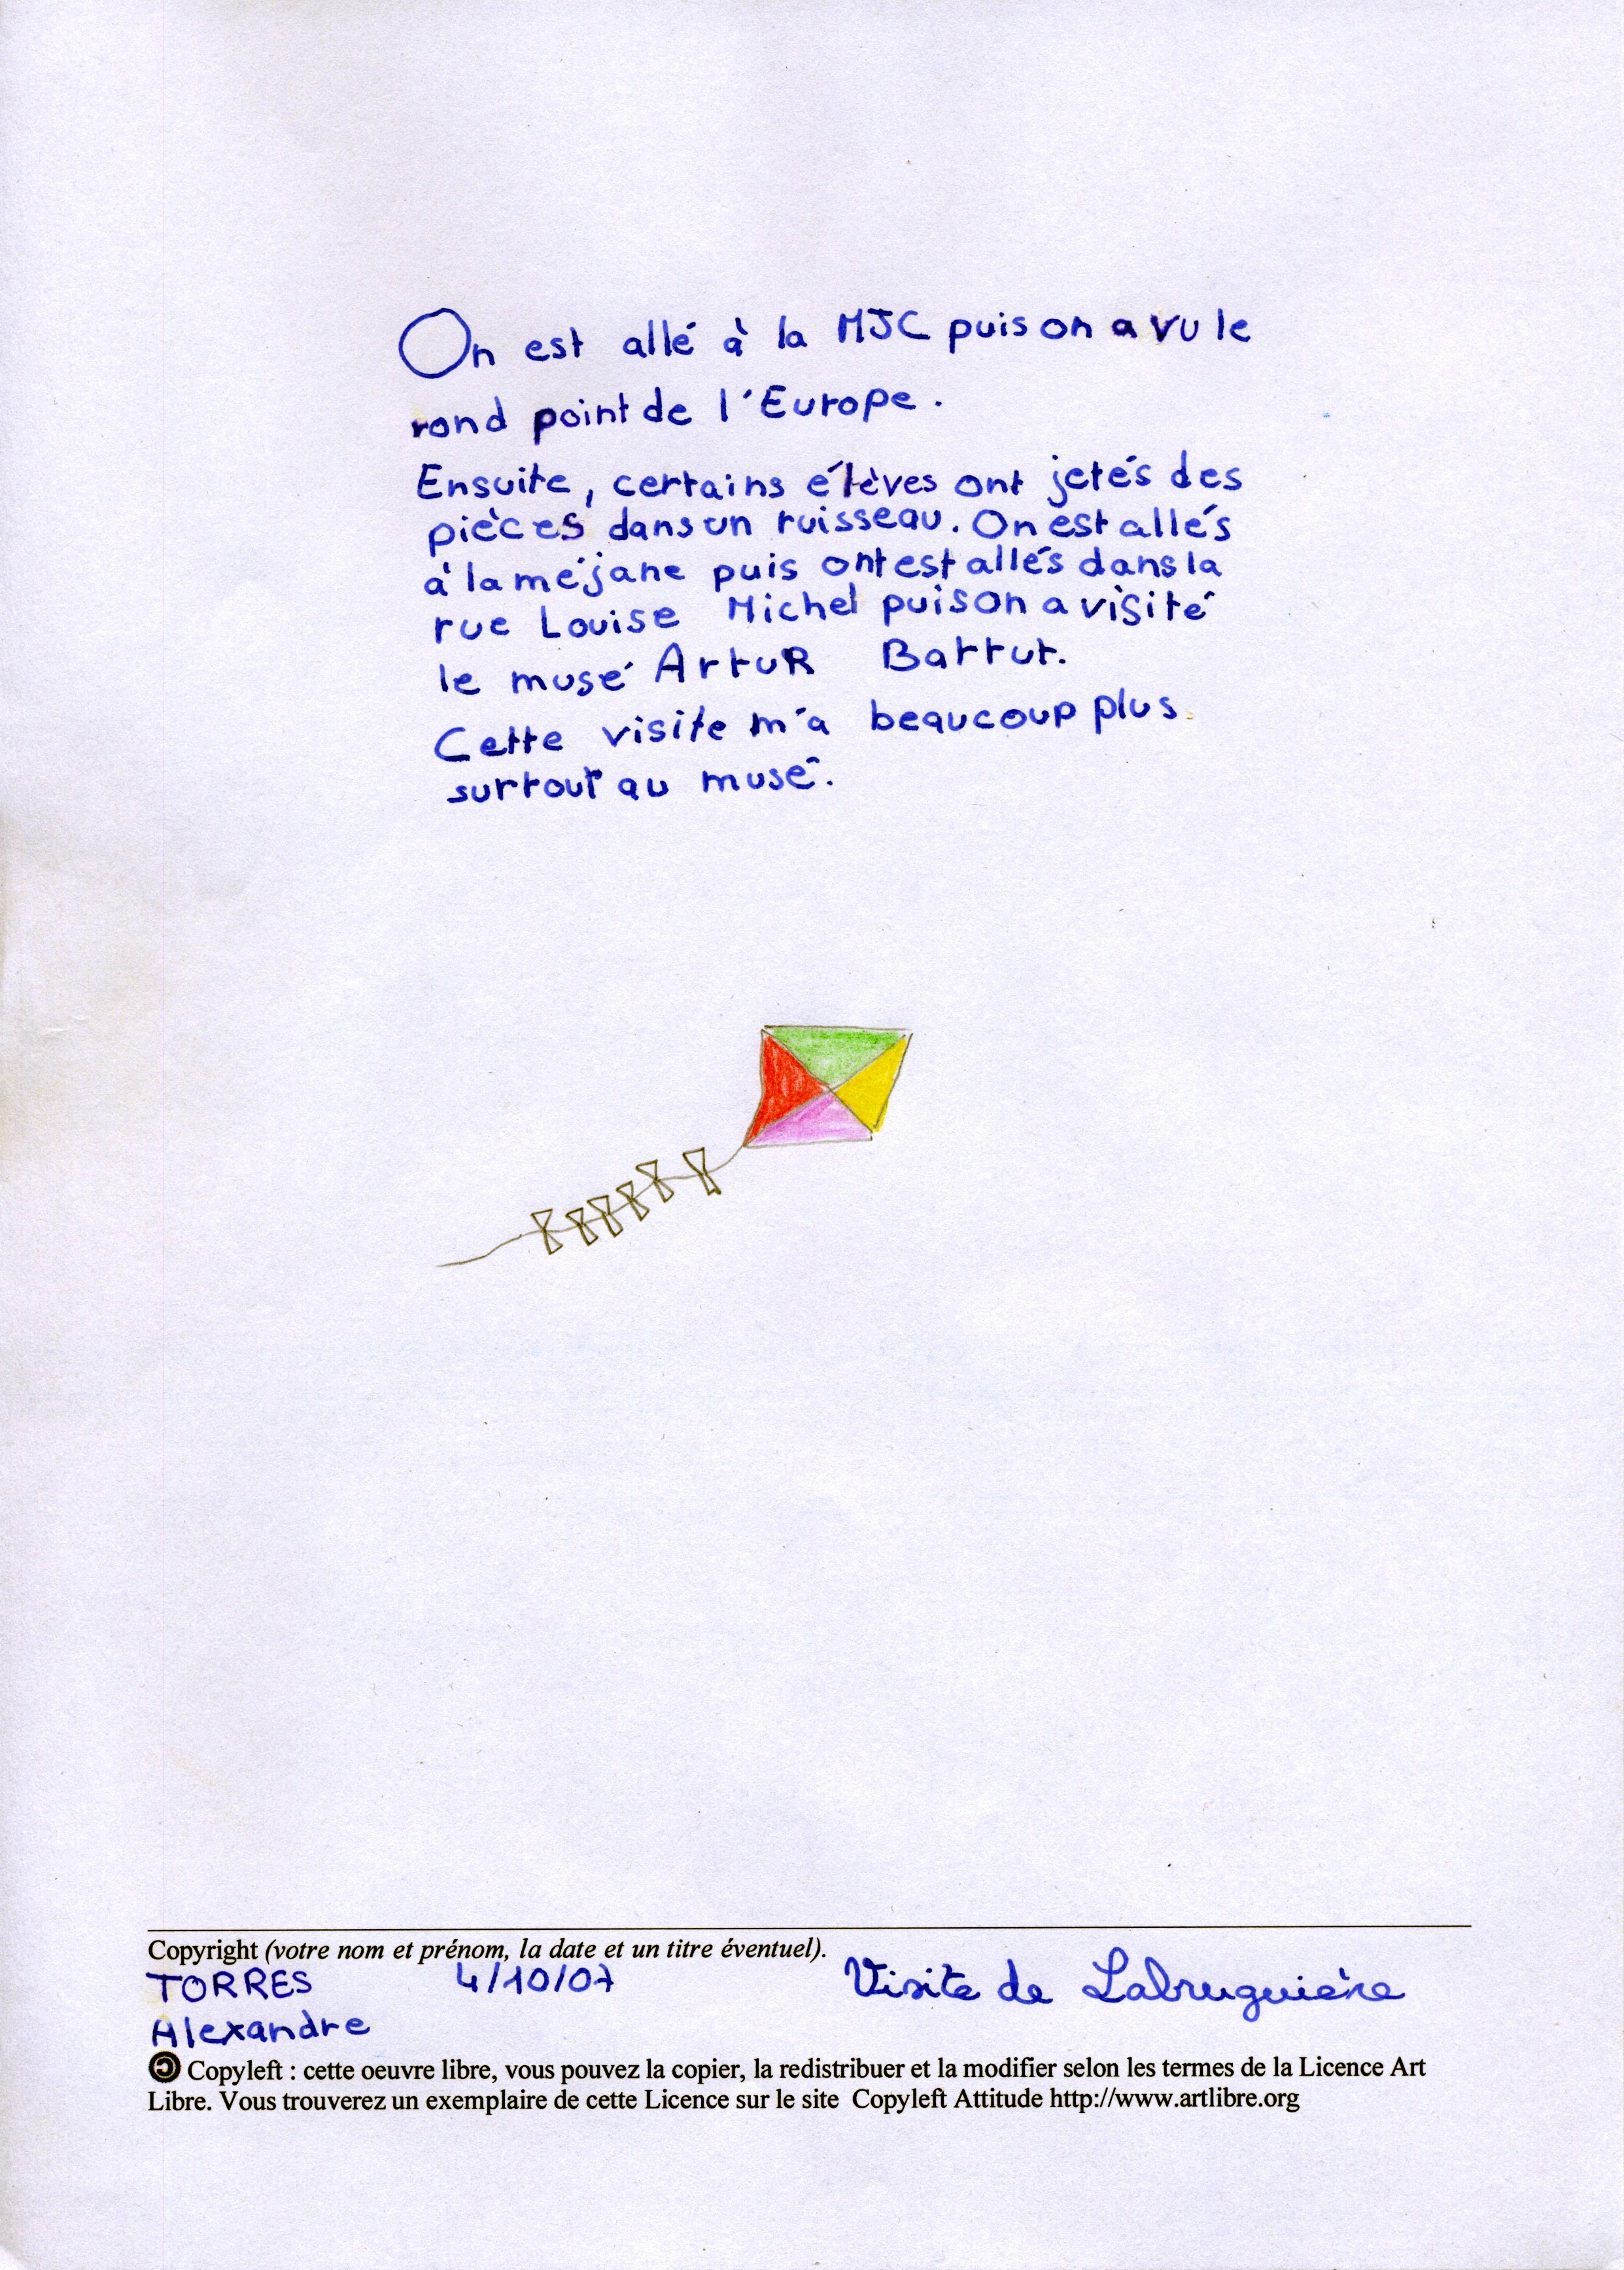 On est allé à la MJC puis on a vu le
rond point de l'Europe.
Ensuite, certains élèves ont jetés des
pièces dans un ruisseau. On est allés
à la méjane puis ont est allés dans la
rue Louise Michel puis on a visité
le musé ArtuR Battut.
Cette visite m'a beaucoup plus.
surtout au musé.
Copyright (votre nom et prénom, la date et un titre éventuel).
TORRES 4/10/07 Visite de Labruguière
Alexandre
Copyleft : cette oeuvre libre, vous pouvez la copier, la redistribuer et la modifier selon les termes de la Licence Art
Libre. Vous trouverez un exemplaire de cette Licence sur le site Copyleft Attitude http://www.artlibre.org